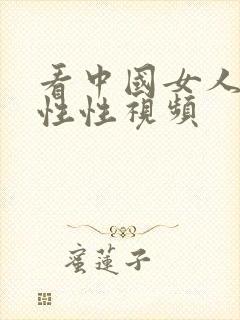 看中國女人
性性視頻
蜜蓮子